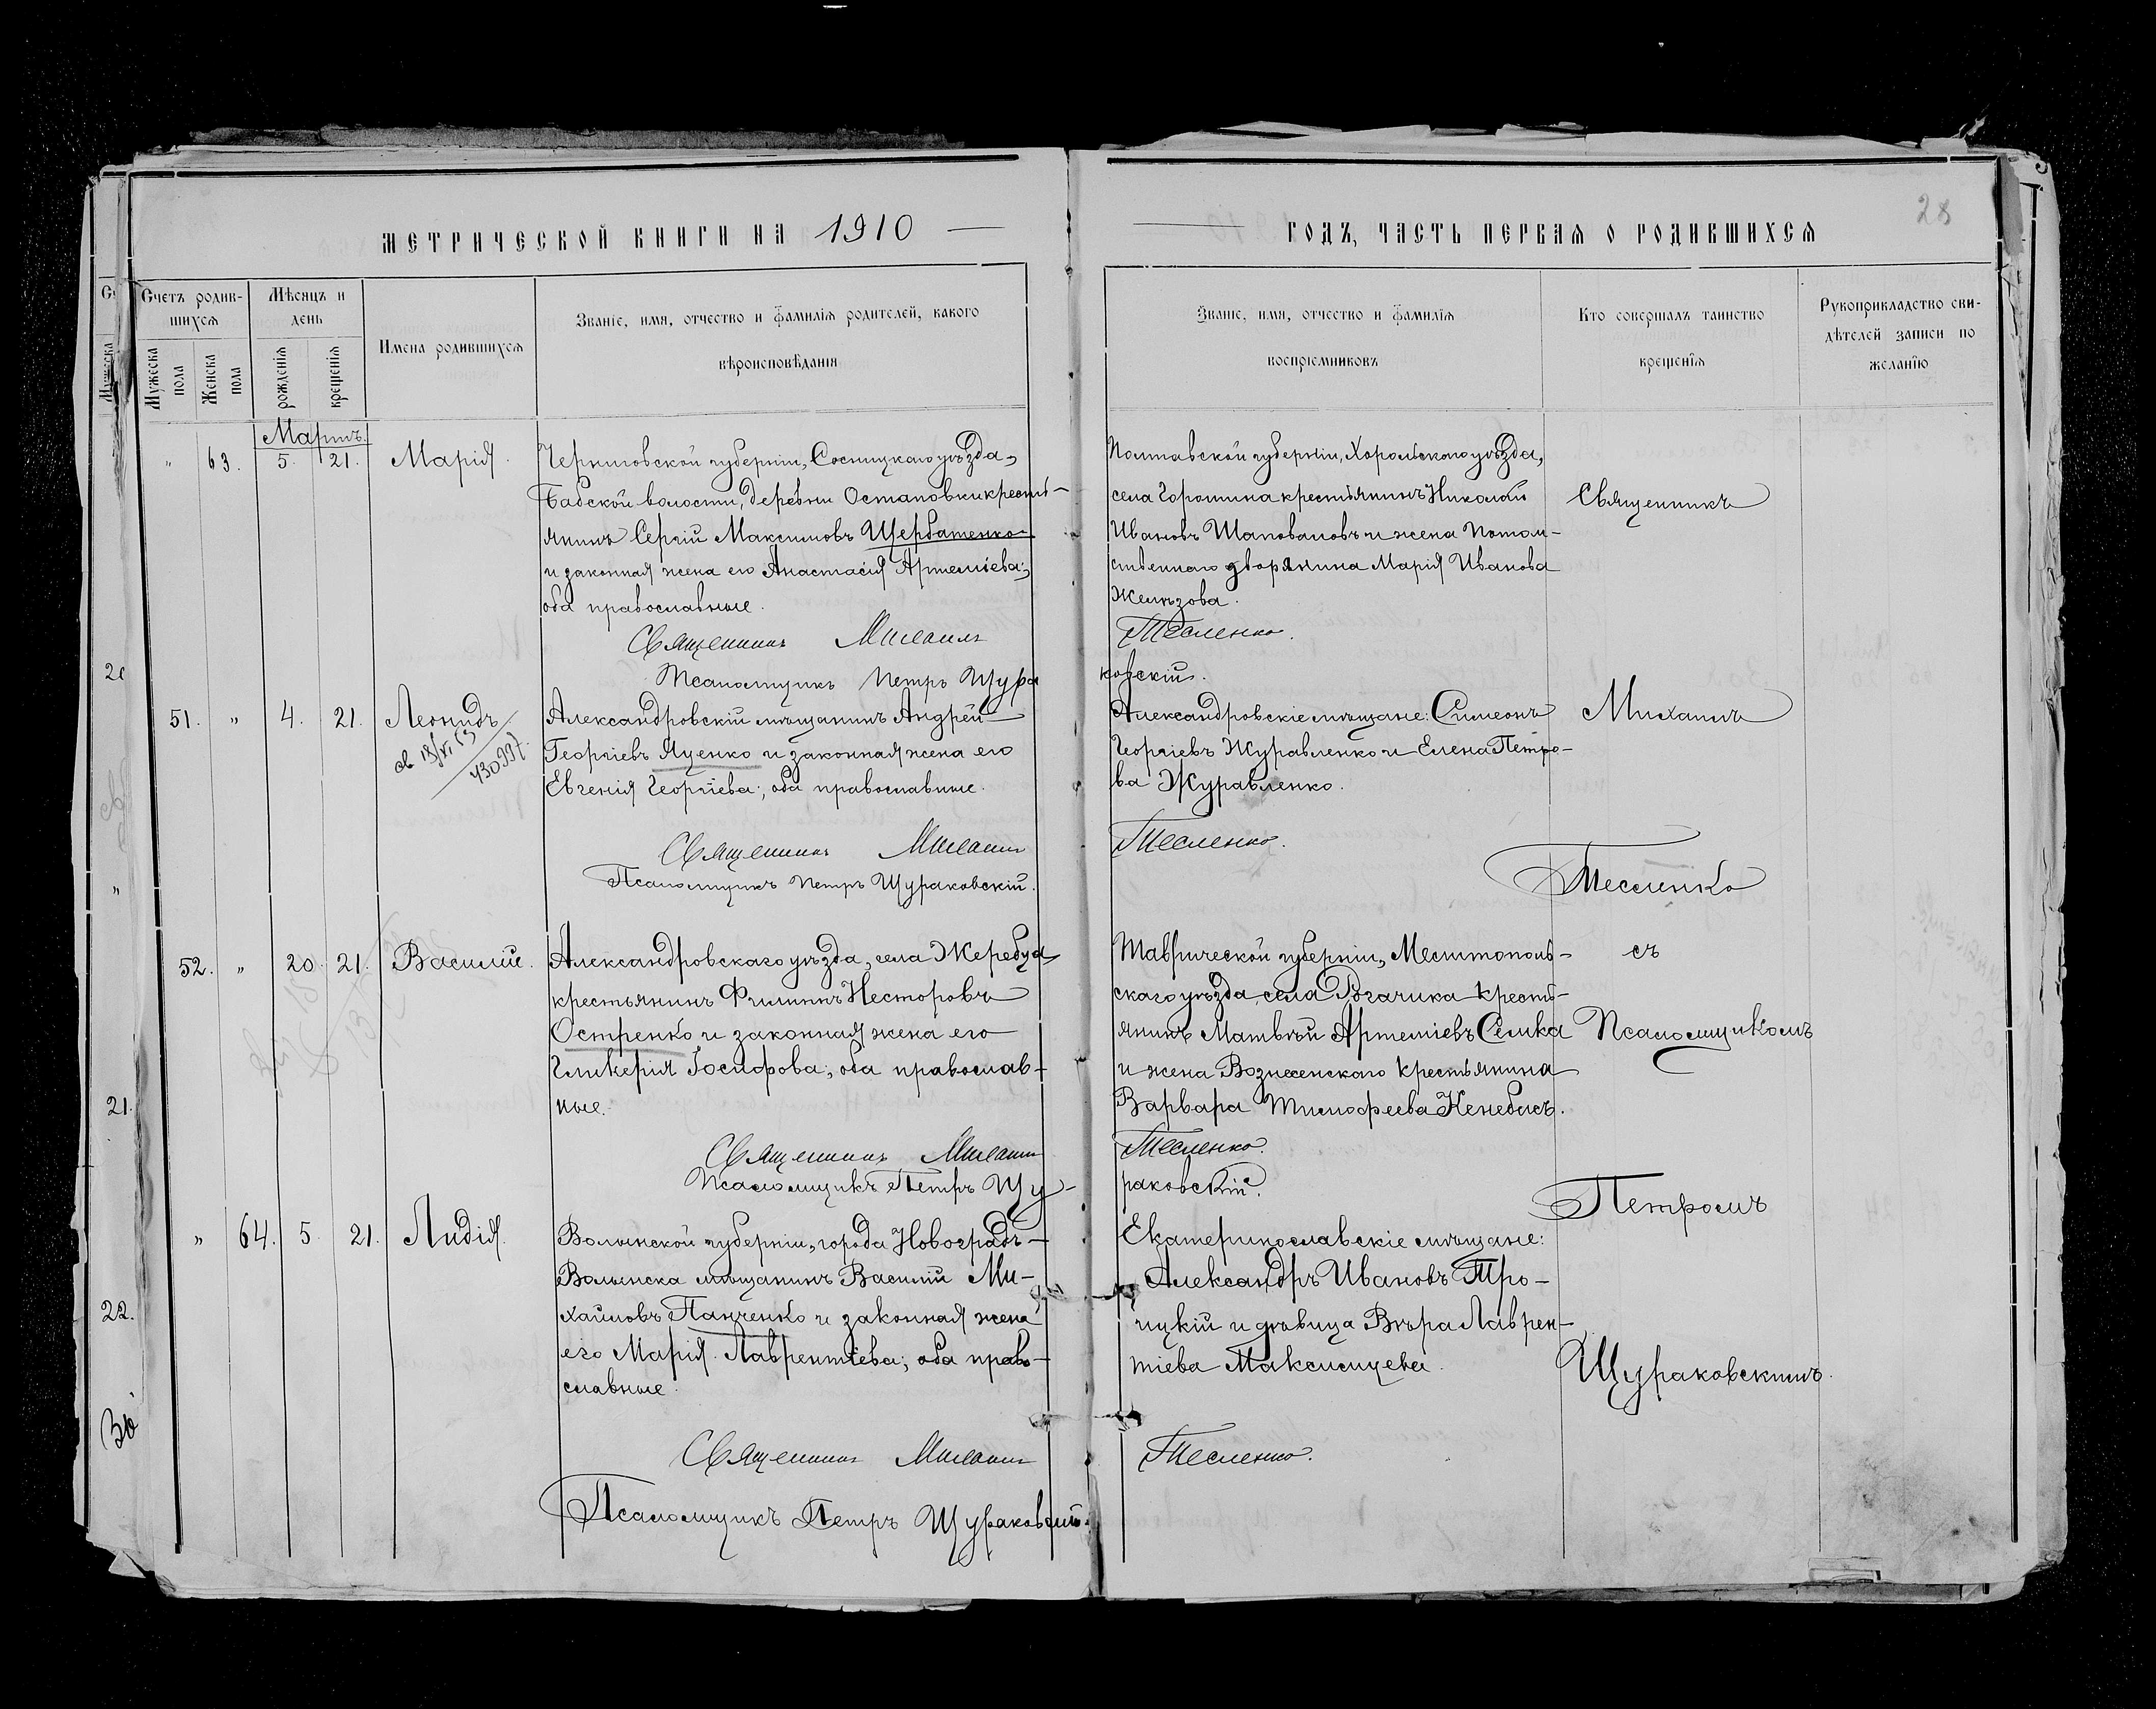 МЕТРИЧЕСКОЙ КНИГИ НА 1910
ГОДЪ, ЧАСТЬ ПЕРВАЯ О РОДИВШИХСЯ
28
Счетъ родив-
шихся
Мужеска пола
Женска пола
Мѣсяцъ и
день
рожденія
крещенія
Имена родившихся
Званіе, имя, отчество и фамилія родителей, какого
вѣроисповѣданія
Званіе, имя, отчество и фамилія
воспріемниковъ
Кто совершалъ таинство
крещенія
Рукоприкладство сви-
дѣтелей записи по
желанію
Мартъ.
" 63. 5. 21. Марія.
Черниговской губерніи, Сосницкаго уѣзда,
Бабской волости, деревни Остаповки кресть-
янинъ Сергій Максимовъ Щербатенко
и законная жена его Анастасія Артеміева;
оба православные.
Священникъ Михаилъ
Псаломщикъ Петръ Щура
Полтавской губерніи, Хорольскаго уѣзда,
села Горошина крестьянинъ Николай
Ивановъ Шаповаловъ и жена потом-
ственнаго дворянина Марія Иванова
Желѣзова.
Тесленко.
ковскій.
Священникъ
51. " 4. 21. Леонидъ
Александровскій мѣщанинъ Андрей
Георгіевъ Яценко и законная жена его
Евгенія Георгіева; оба православные.
Священникъ Михаилъ
Псаломщикъ Петръ Щураковскій.
Александровскіе мѣщане: Симеонъ
Георгіевъ Журавленко и Елена Петро-
ва Журавленко.
Тесленко.
Михаилъ
Тесленко
52. " 20. 21. Василій.
Александровскаго уѣзда, села Жеребца
крестьянинъ Филиппъ Несторовъ
Остренко и законная жена его
Гликерія Іосифова; оба православ-
ные.
Священникъ Михаилъ
Псаломщикъ Петръ Щу-
Таврической губерніи, Мелитополь-
скаго уѣзда, села Рогачика кресть-
янинъ Матвѣй Артеміевъ Семка
и жена Вознесенскаго крестьянина
Варвара Тимофеева
Тесленко.
раковскій.
съ
Псаломщикомъ
Петромъ
" 64. 5. 21. Лидія.
Волынской губерніи, города Новоградъ-
Волынска мѣщанинъ Василій Ми-
хайловъ Панченко и законная жена
его Марія Лаврентіева; оба право-
славные.
Священникъ Михаилъ
Псаломщикъ Петръ Щураковскій.
Екатеринославскіе мѣщане:
Александръ Ивановъ Тро-
ицкій и дѣвица Вѣра Лаврен-
тіева
Тесленко.
Щураковскимъ.
21.
22.